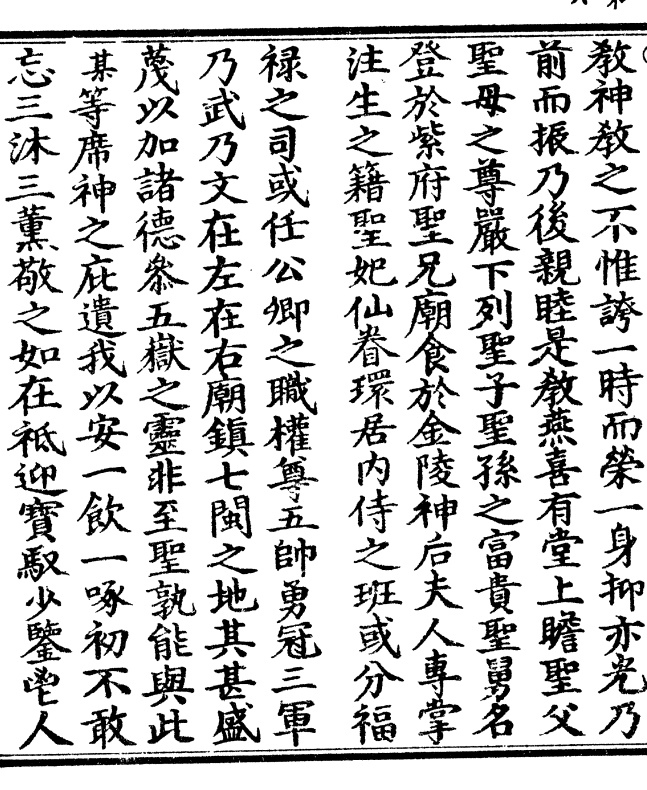 教神教之不惟誇一時而榮一身抑亦光乃
前而振乃後親睦是教燕喜有堂上瞻聖父
聖母之尊嚴下列聖子聖孫之富貴聖舅名
登於紫府聖兄廟食於金陵神后夫人專掌
注生之籍聖妃仙眷環居内侍之班或分福
禄之司或任公卿之職權尊五帥勇冠三軍
乃武乃文在左在右廟鎮七閩之地其甚盛
蔑以加諸德叅五嶽之靈非至聖孰能與此
某等席神之庇遺我以安一飲一啄初不敢
忘三沐三薰敬之如在祗迎寶馭少鑒人